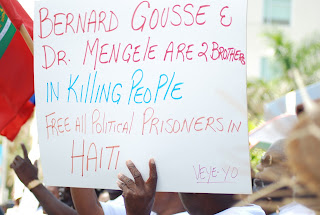 BERNARD GOUSSE &
DR. MENGELE ARE 2 BROTHERS
IN KILLING PEOPLE
FREE ALL POLITICAL PRISONERS IN
HAITI
VEYE-YO